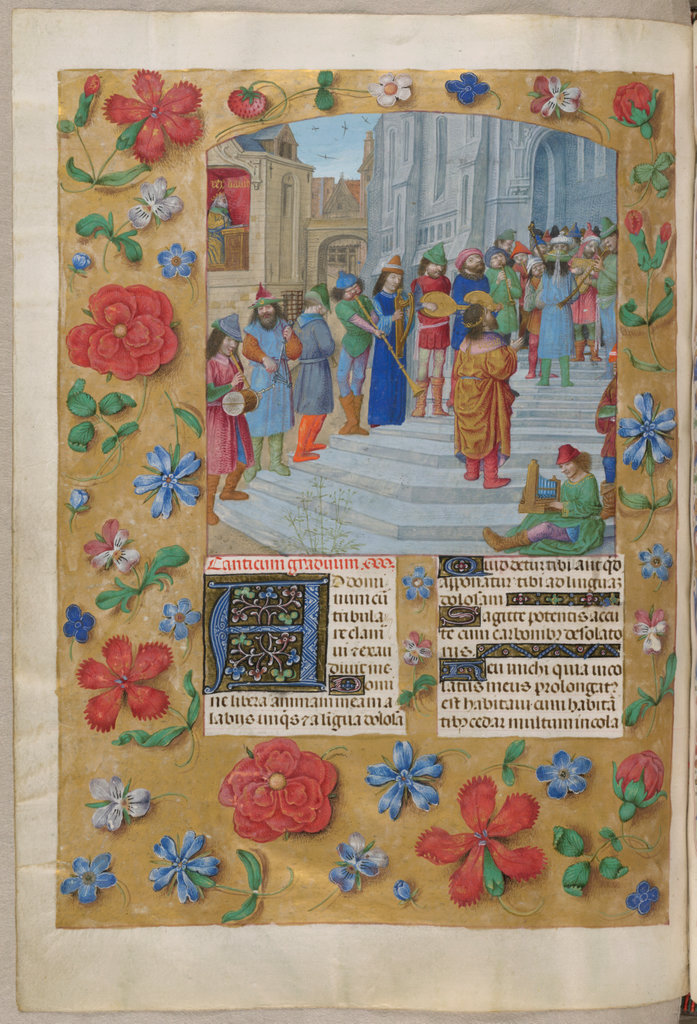 Canticum graduum
AD domi
num cū
tribula
re clam
ui ⁊ exau
diuit me
Domi
ne libera animam meam a
labiis iniqs ⁊ a ligua dolosa
Quid detur tibi aut qd
apponatur tibi ad linguaꝫ
dolosam
Sagitte potentis acute
cum carbonibꝫ desolato
riis
Heu michi quia inco
latus meus prolongatꝰ
est habitaui cum habitā
tibꝫ cedar multum incola